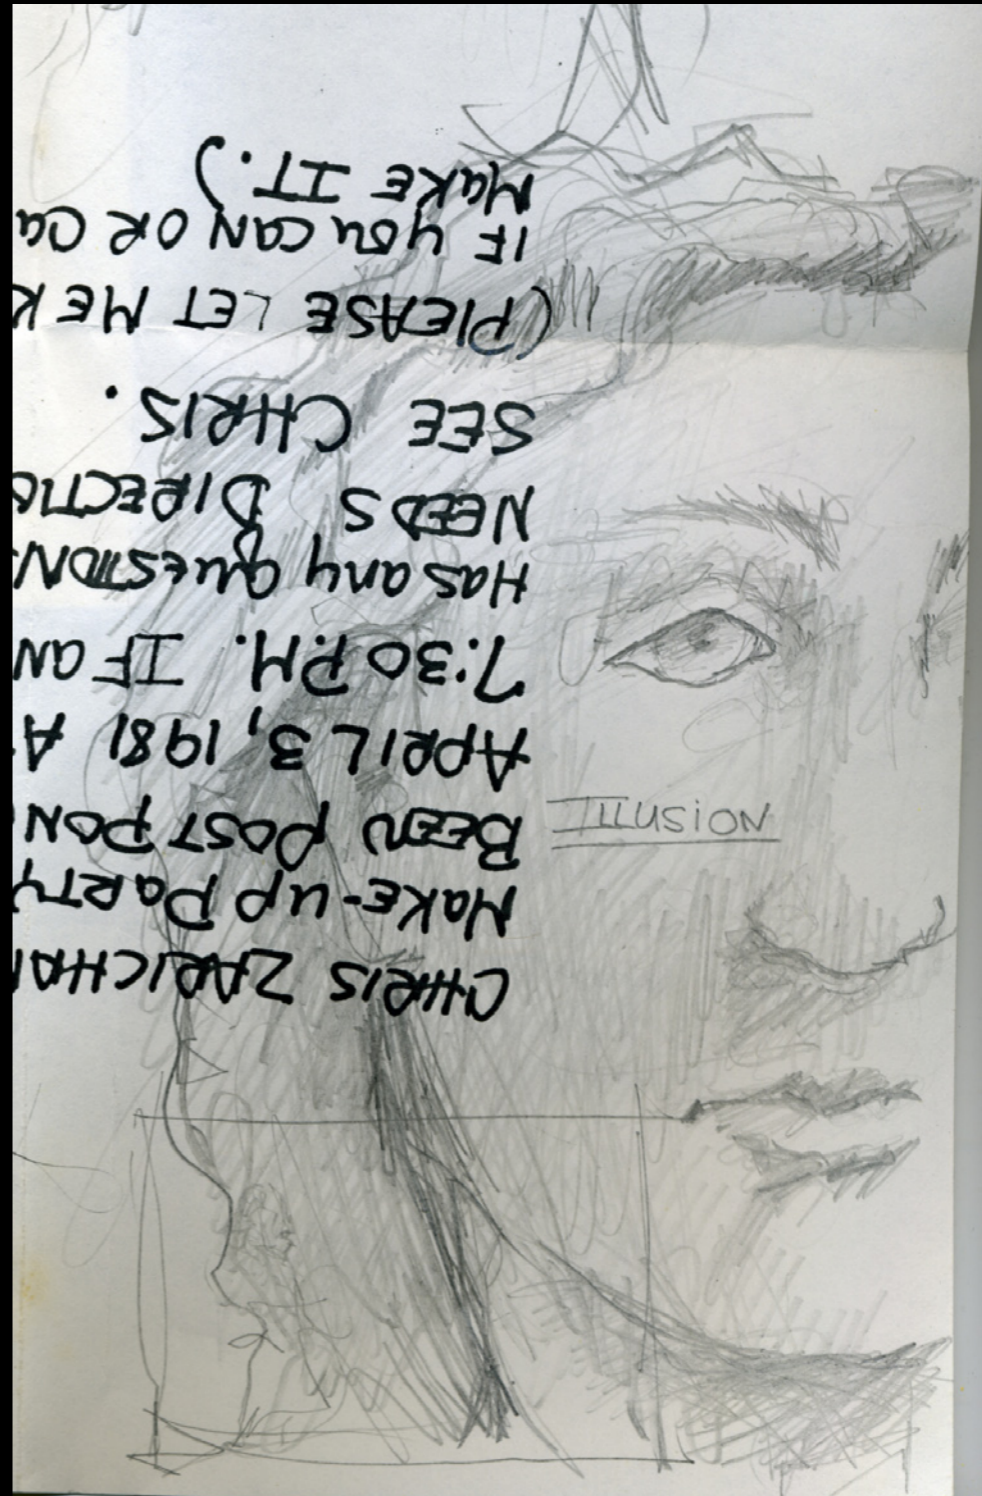 CHRIS ZARICHA
MaKE-up PaRTY
BEEN POSTPON
APRIL 3, 1981 A
7:30 P.M. IF aN
Has any QuESTION
NEEDS DIRECTIO
SEE CHRIS.
(PLEASE LET ME K
IF you CaN OR Ca
MaKE IT.)
ILLUSiON